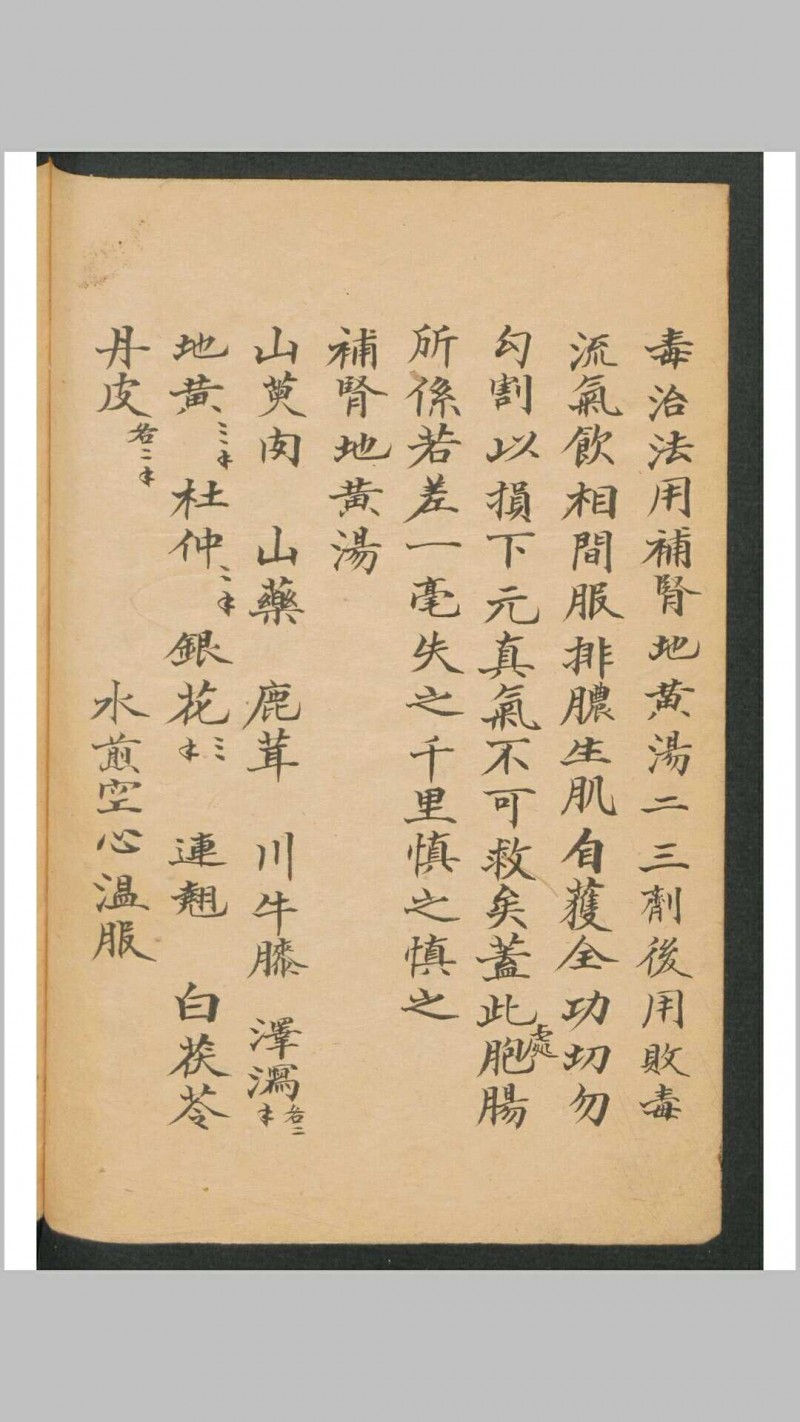 毒治法用補腎地黄湯二三劑後用敗毒
流氣飲相間服排膿生肌自獲全功切勿
勾割以損下元真氣不可救矣蓋此處胞腸
所係若差一毫失之千里慎之慎之
補腎地黄湯
山萸肉 山藥 鹿茸 川牛膝 澤瀉各二
地黄三 杜仲二 銀花三 連翹 白茯苓
丹皮各二 水煎空心温服